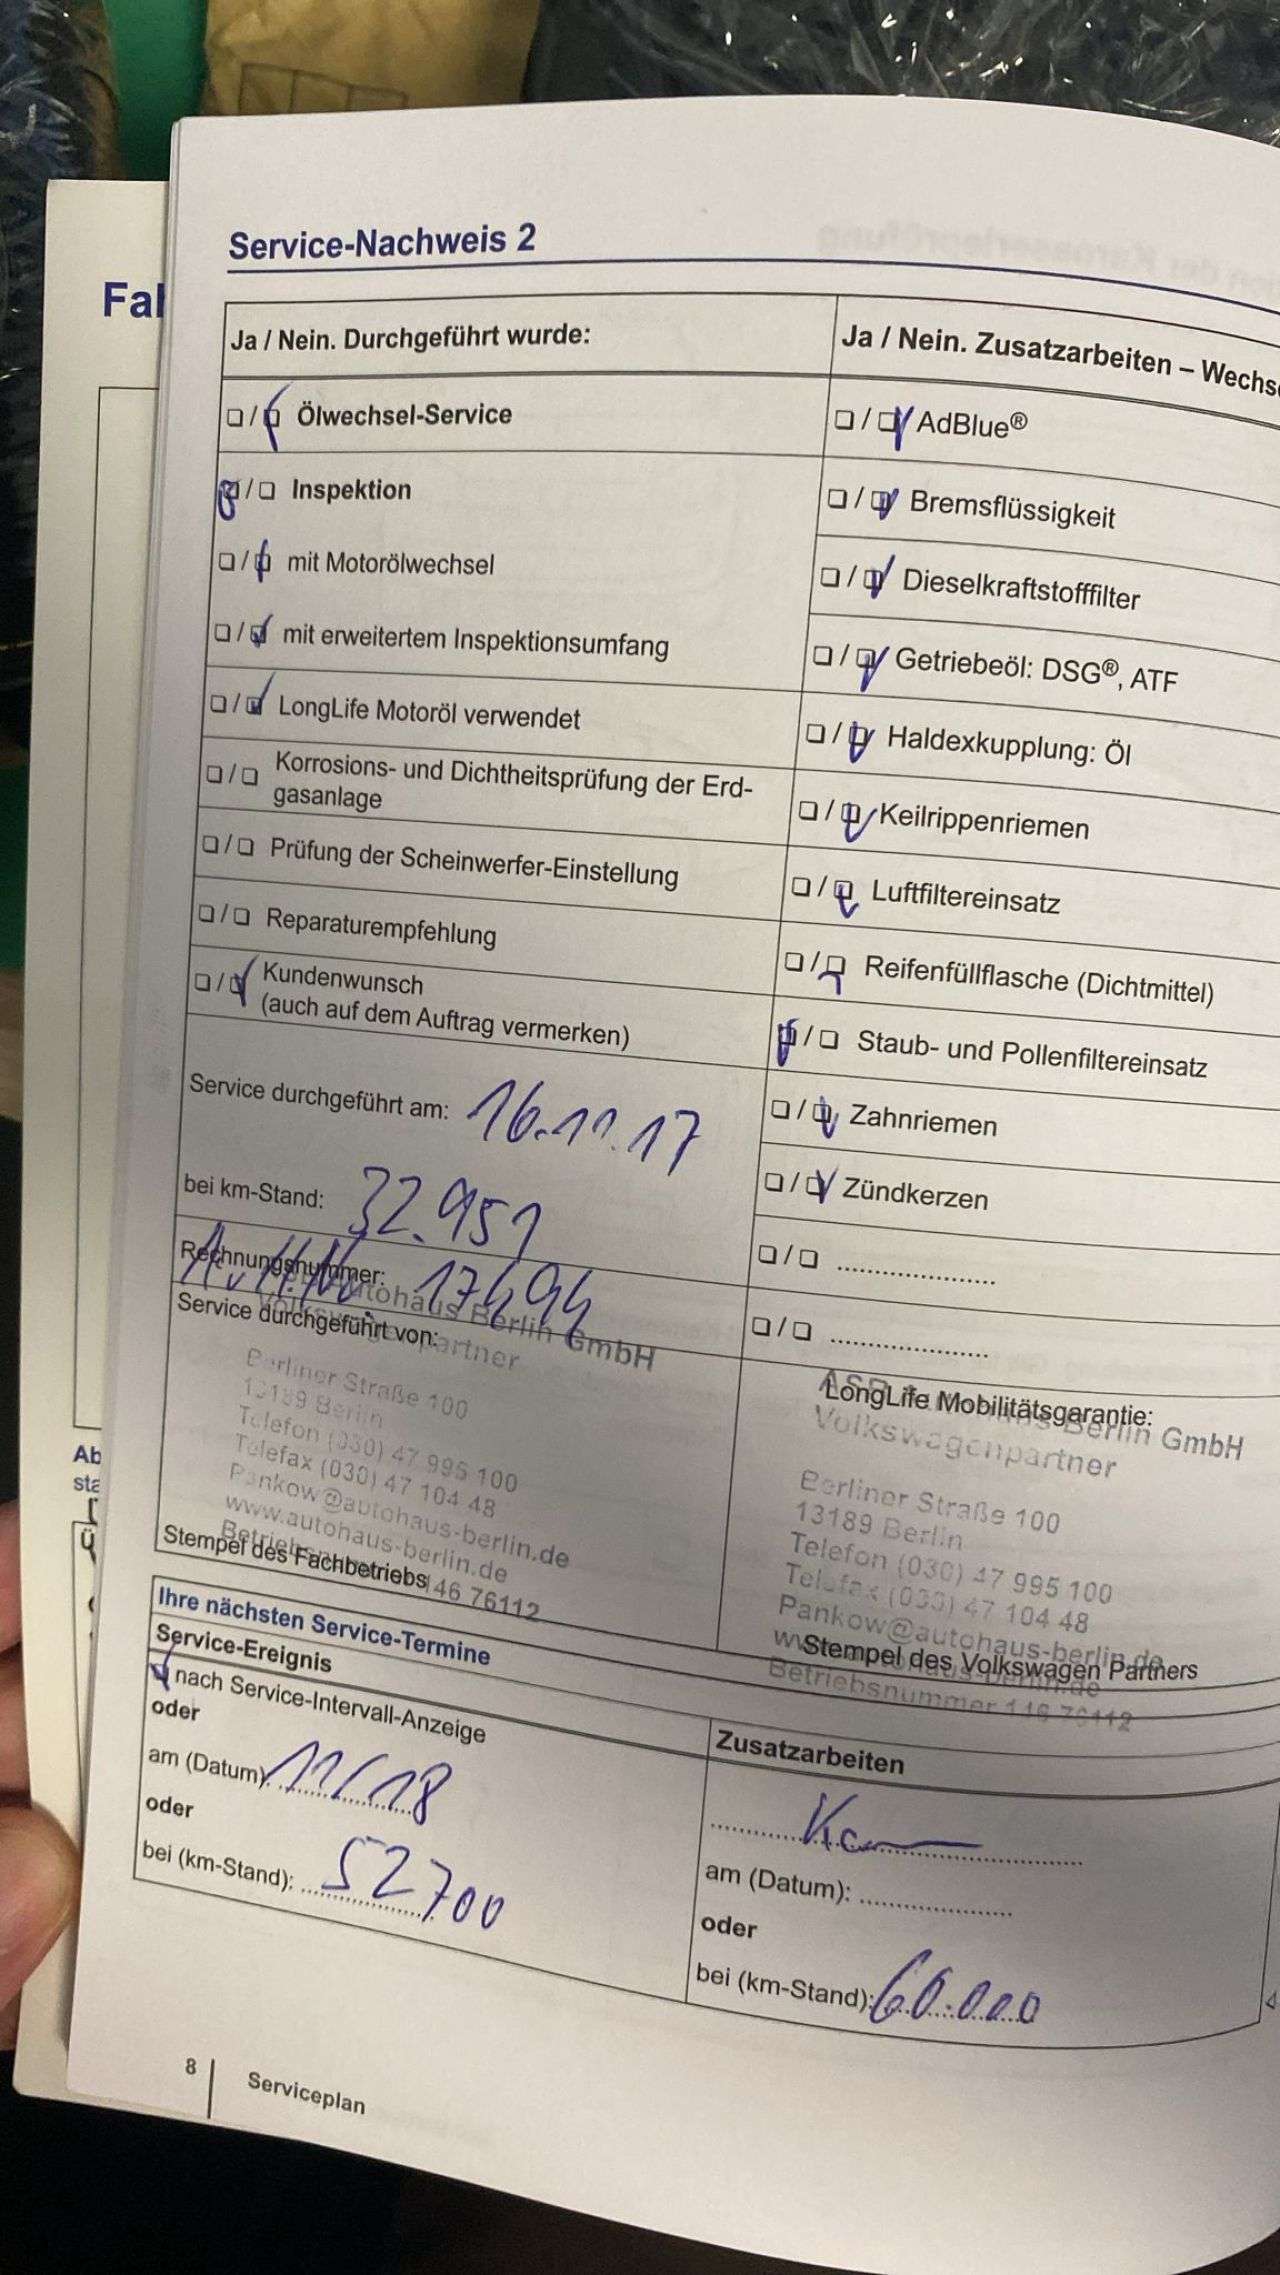 Service-Nachweis 2
Fal
Ja / Nein. Durchgeführt wurde:
❏ / ❏ Ölwechsel-Service
❏ / ❏ Inspektion
❏ / ❏ mit Motorölwechsel
❏ / ❏ mit erweitertem Inspektionsumfang
❏ / ❏ LongLife Motoröl verwendet
❏ / ❏ Korrosions- und Dichtheitsprüfung der Erd-
gasanlage
❏ / ❏ Prüfung der Scheinwerfer-Einstellung
❏ / ❏ Reparaturempfehlung
❏ / ❏ Kundenwunsch
(auch auf dem Auftrag vermerken)
Service durchgeführt am: 16.11.17
bei km-Stand: 32.951
Rechnungsnummer: 17494
Autohaus Berlin GmbH
Service durchgeführt von:
Volkswagenpartner
Berliner Straße 100
13189 Berlin
Telefon (030) 47 995 100
Telefax (030) 47 104 48
Pankow@autohaus-berlin.de
www.autohaus-berlin.de
Stempel des Fachbetriebs
76112
Ja / Nein. Zusatzarbeiten – Wechse
❏ / ❏ AdBlue®
❏ / ❏ Bremsflüssigkeit
❏ / ❏ Dieselkraftstofffilter
❏ / ❏ Getriebeöl: DSG®, ATF
❏ / ❏ Haldexkupplung: Öl
❏ / ❏ Keilrippenriemen
❏ / ❏ Luftfiltereinsatz
❏ / ❏ Reifenfüllflasche (Dichtmittel)
❏ / ❏ Staub- und Pollenfiltereinsatz
❏ / ❏ Zahnriemen
❏ / ❏ Zündkerzen
❏ / ❏ ......................
❏ / ❏ ......................
LongLife Mobilitätsgarantie:
Berlin GmbH
Volkswagenpartner
Berliner Straße 100
13189 Berlin
Telefon (030) 47 995 100
Telefax (030) 47 104 48
Pankow@autohaus-berlin.de
Stempel des Volkswagen Partners
Betriebsnummer 146 76112
Ihre nächsten Service-Termine
Service-Ereignis
nach Service-Intervall-Anzeige
oder
am (Datum): 11/18
oder
bei (km-Stand): 52700
Zusatzarbeiten
am (Datum): ......................
oder
bei (km-Stand): 60.000
Ab
sta
8
Serviceplan